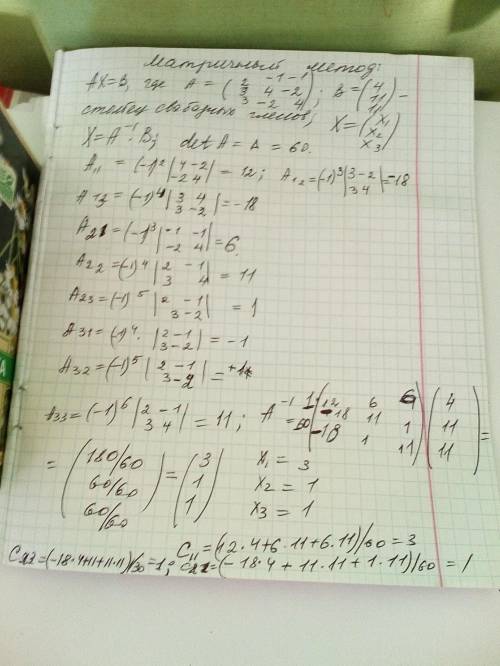 Матричный метод:
AX=B, где A = (2 -1 -1; 3 4 -2; 3 -2 4); B = (4; 11; 11) –
столбец свободных членов; X = (x₁; x₂; x₃)
X=A⁻¹·B; det A = Δ = 60.
A₁₁ = (-1)² |4 -2; -2 4| = 12; A₁₂ = (-1)³ |3 -2; 3 4| = -18
A₁₃ = (-1)⁴ |3 4; 3 -2| = -18
A₂₁ = (-1)³ |-1 -1; -2 4| = 6
A₂₂ = (-1)⁴ |2 -1; 3 4| = 11
A₂₃ = (-1)⁵ |2 -1; 3 -2| = 1
A₃₁ = (-1)⁴ · |2 -1; 3 -2| = -1
A₃₂ = (-1)⁵ |2 -1; 3 -2| = +1
A₃₃ = (-1)⁶ |2 -1; 3 4| = 11; A⁻¹ = 1/60 (12 6 6; -18 11 1; -18 1 11) (4; 11; 11) =
= (180/60; 60/60; 60/60) = (3; 1; 1)
x₁ = 3
x₂ = 1
x₃ = 1
C₁₁ = (12·4+6·11+6·11)/60 = 3
=(-18·4+11+11·11)/30=1; C₂₁=(-18·4+11·11+1·11)/60 = 1